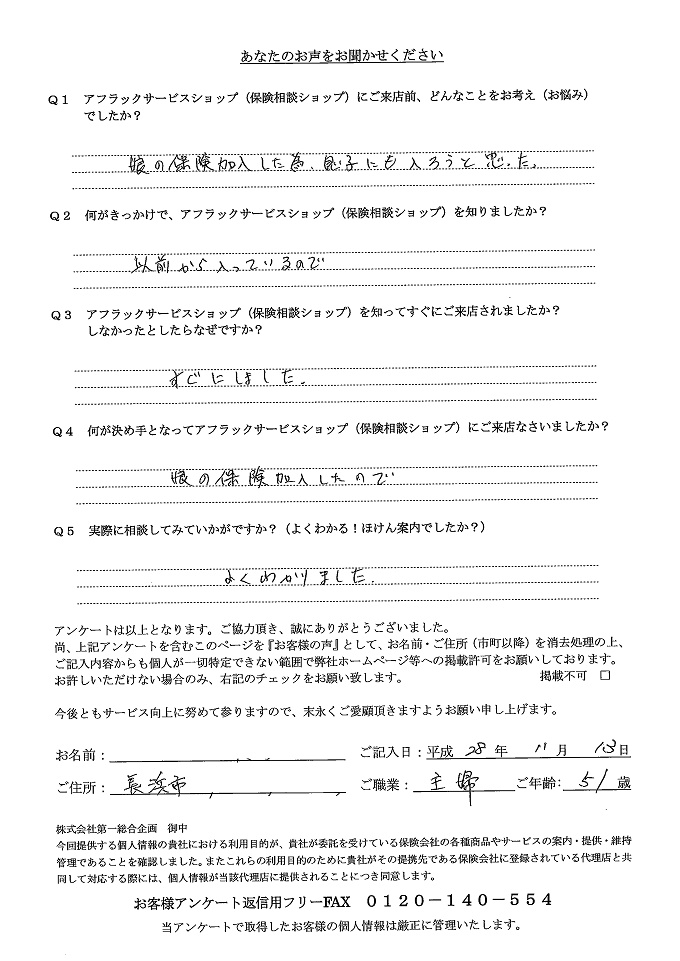 あなたのお声をお聞かせください
Q1 アフラックサービスショップ（保険相談ショップ）にご来店前、どんなことをお考え（お悩み）
でしたか？
娘の保険加入した為、息子にも入ろうと思った。
Q2 何がきっかけで、アフラックサービスショップ（保険相談ショップ）を知りましたか？
以前から入っているので
Q3 アフラックサービスショップ（保険相談ショップ）を知ってすぐにご来店されましたか？
しなかったとしたらなぜですか？
すぐにしました。
Q4 何が決め手となってアフラックサービスショップ（保険相談ショップ）にご来店なさいましたか？
娘の保険加入したので
Q5 実際に相談してみていかがですか？（よくわかる！ほけん案内でしたか？）
よくわかりました。
アンケートは以上となります。ご協力頂き、誠にありがとうございました。
尚、上記アンケートを含むこのページを『お客様の声』として、お名前・ご住所（市町以降）を消去処理の上、
ご記入内容からも個人が一切特定できない範囲で弊社ホームページ等への掲載許可をお願いしております。
お許しいただけない場合のみ、右記のチェックをお願い致します。 掲載不可 □
今後ともサービス向上に努めて参りますので、末永くご愛顧頂きますようお願い申し上げます。
お名前： ご記入日：平成 28 年 11 月 13 日
ご住所： 長浜市 ご職業： 主婦 ご年齢： 51 歳
株式会社第一総合企画 御中
今回提供する個人情報の貴社における利用目的が、貴社が委託を受けている保険会社の各種商品やサービスの案内・提供・維持
管理であることを確認しました。またこれらの利用目的のために貴社がその提携先である保険会社に登録されている代理店と共
同して対応する際には、個人情報が当該代理店に提供されることにつき同意します。
お客様アンケート返信用フリーFAX 0120－140－554
当アンケートで取得したお客様の個人情報は厳正に管理いたします。